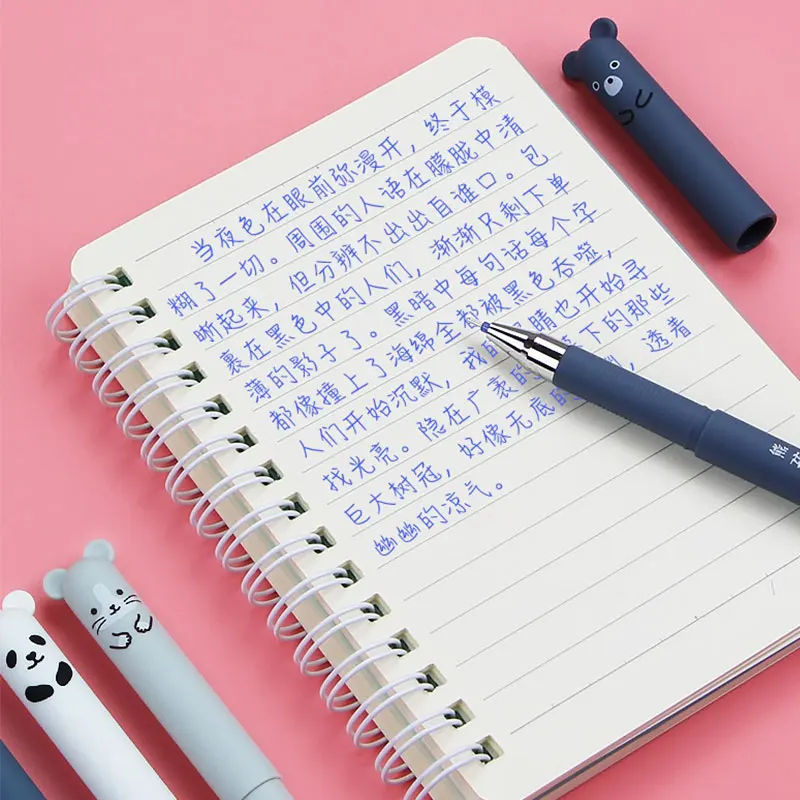 当夜色在眼前弥漫开，终于模
糊了一切。周围的人语在朦胧中清
晰起来，但分辨不出出自谁口。包
裹在黑色中的人们，渐渐只剩下单
薄的影子了。黑暗中每句话每个字
都像撞上了海绵全都被黑色吞噬，
人们开始沉默，我的睛也开始寻
找光亮。隐在广袤的下的那些
巨大树冠，好像无底的，透着
幽幽的凉气。
熊